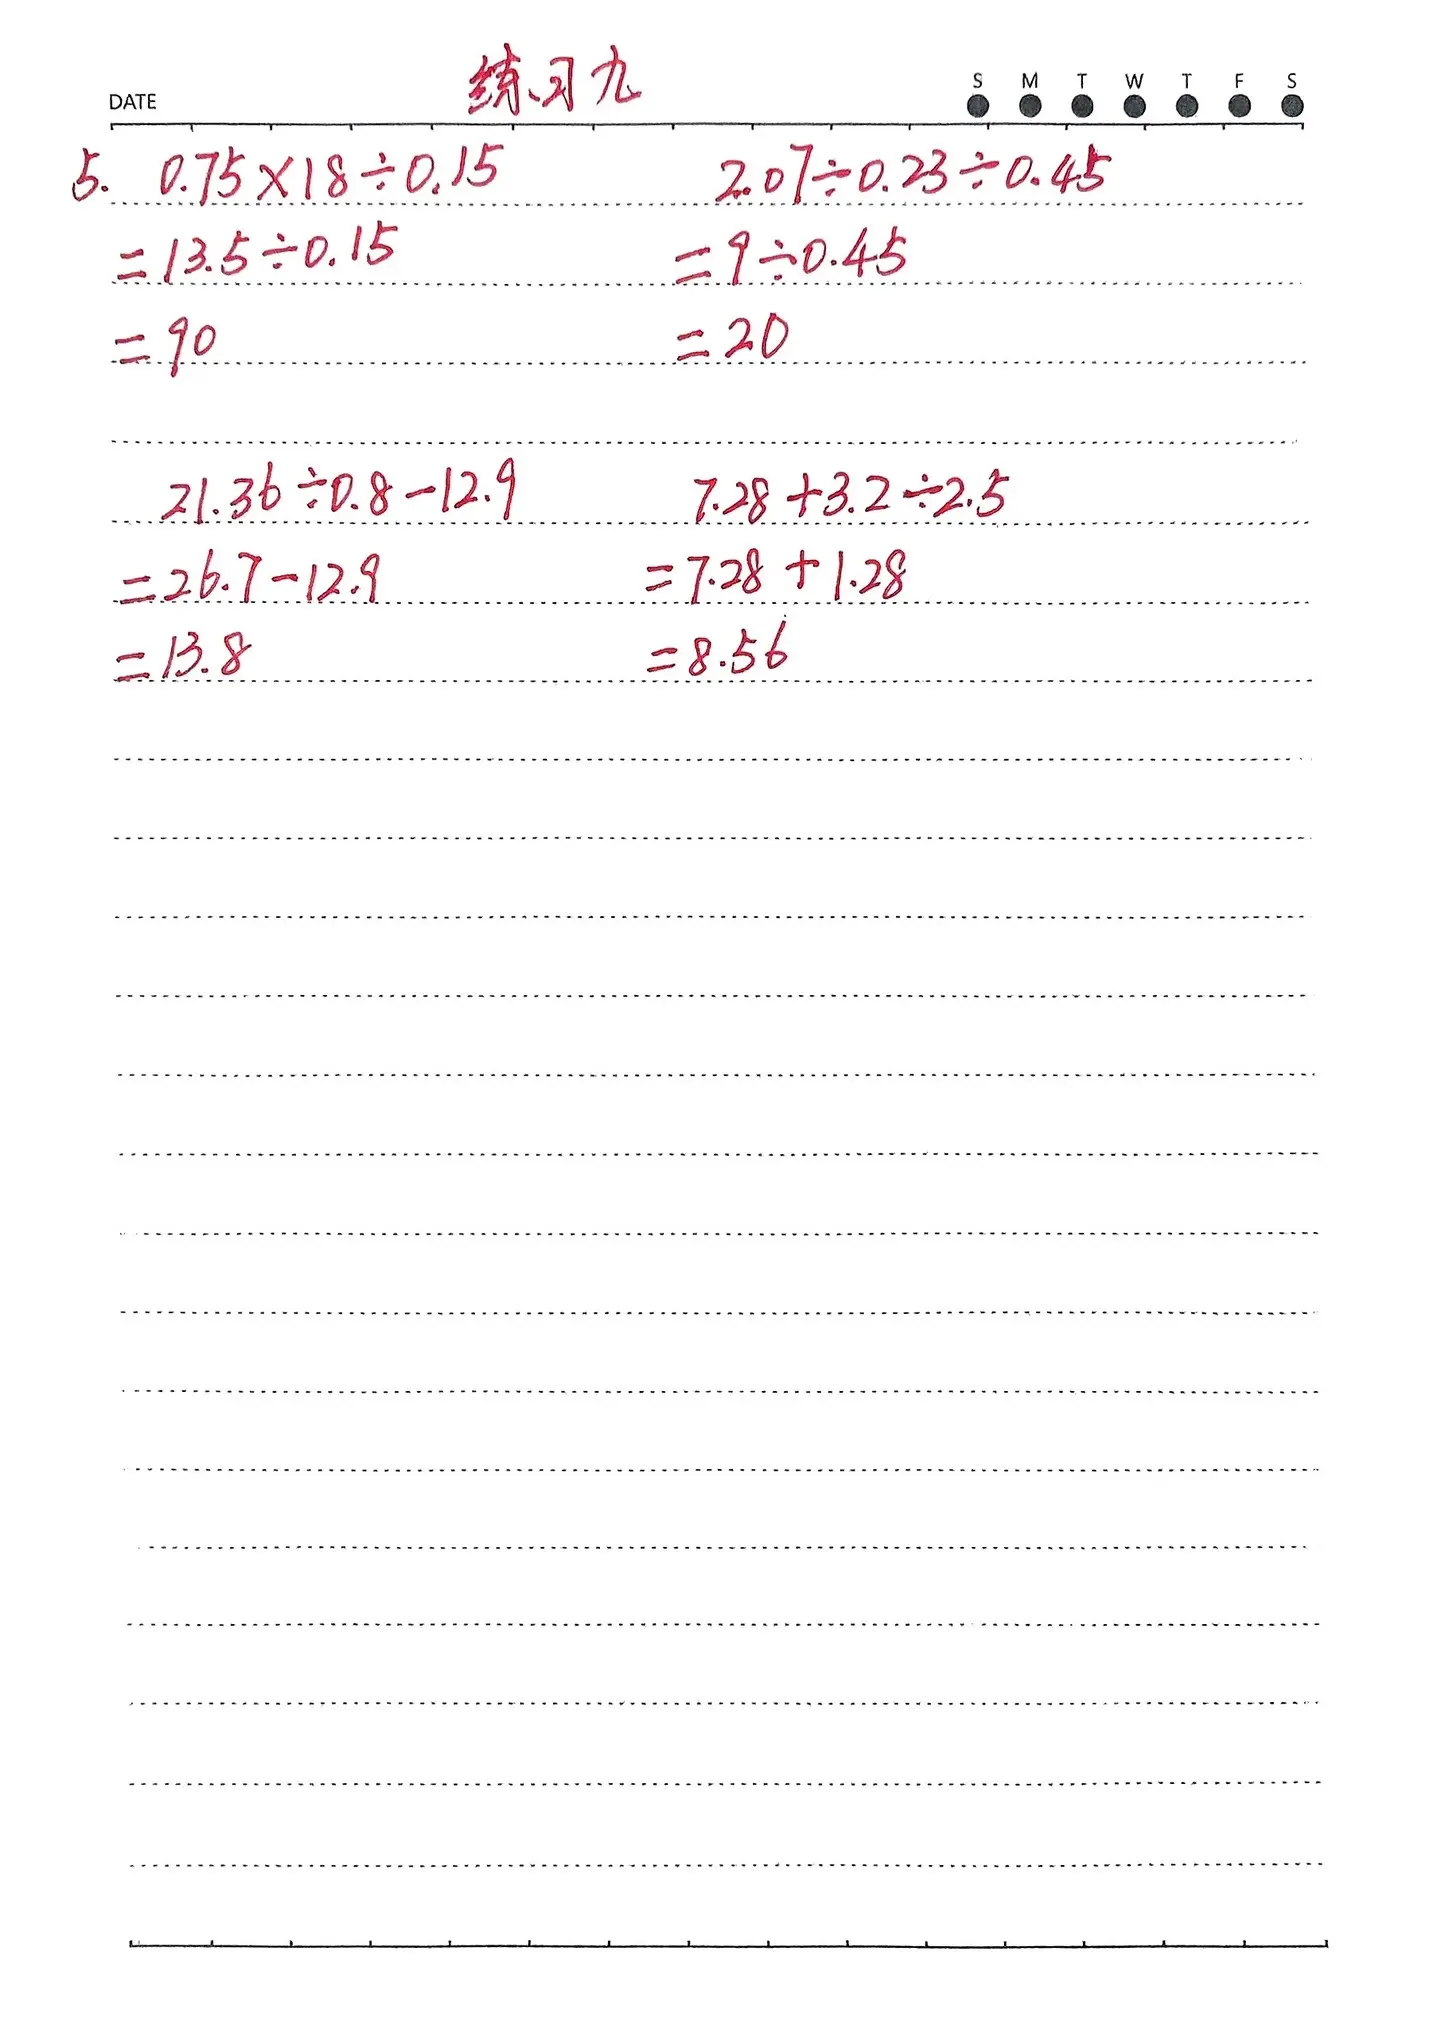 DATE 练习九 S M T W T F S
5. 0.75×18÷0.15 2.07÷0.23÷0.45
=13.5÷0.15 =9÷0.45
=90 =20
21.36÷0.8-12.9 7.28+3.2÷2.5
=26.7-12.9 =7.28+1.28
=13.8 =8.56